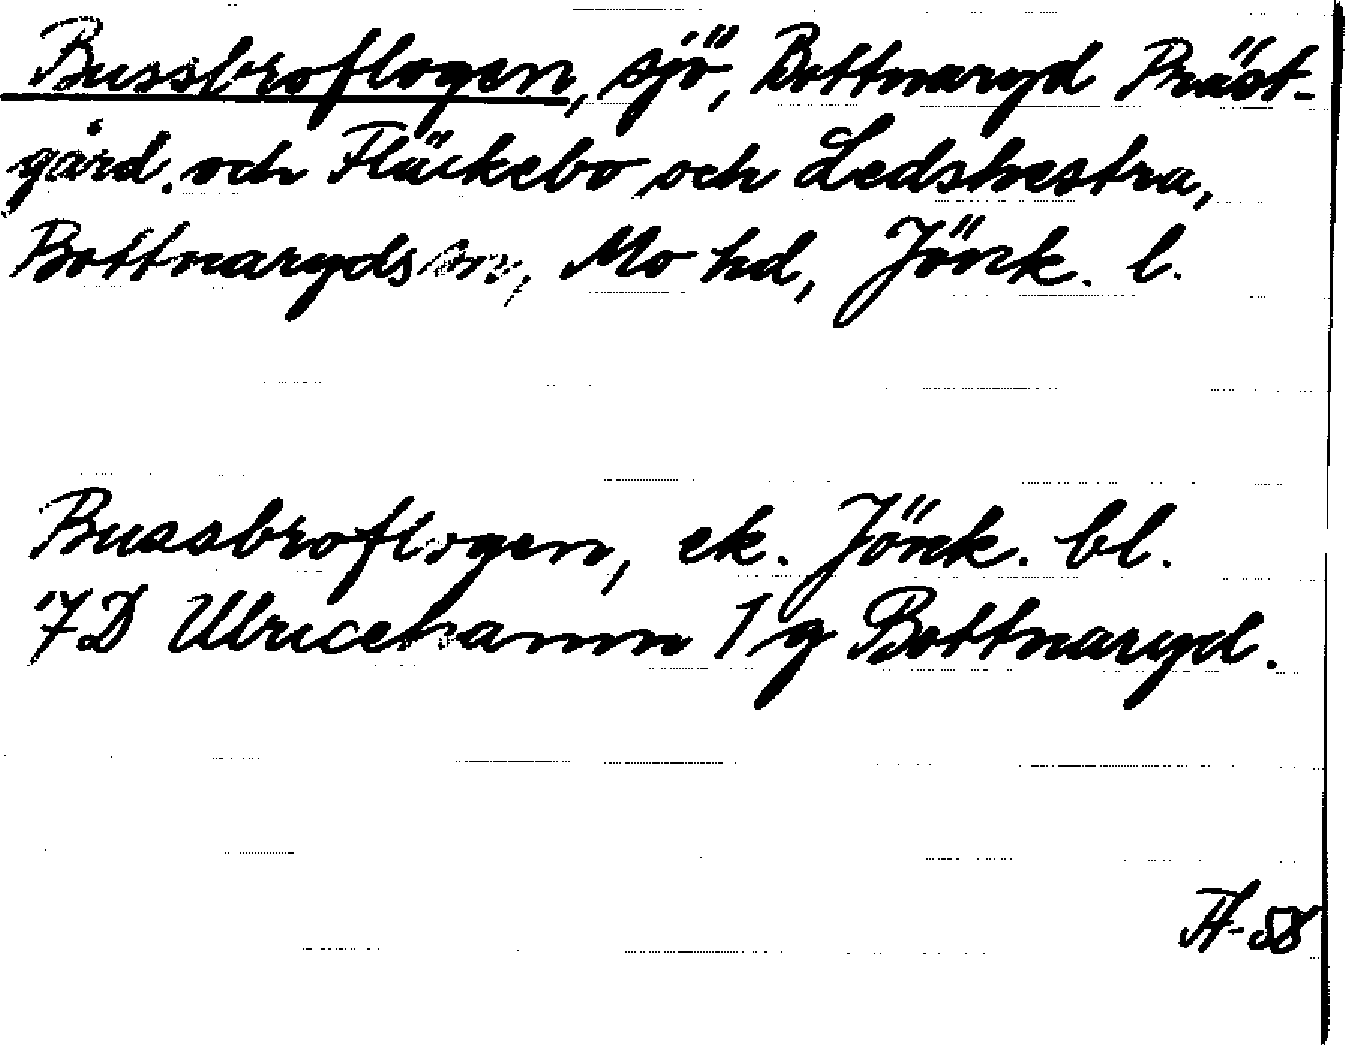 Bussbroflogen, sjö, Bottnaryd Präst-
gård. och Fläckebo och Ledshestra,
Bottnaryds sn, Mo hd, Jönk. l.
Bussbroflogen, ek. Jönk. bl.
7D Ulricehamn 1 g Bottnaryd.
-58